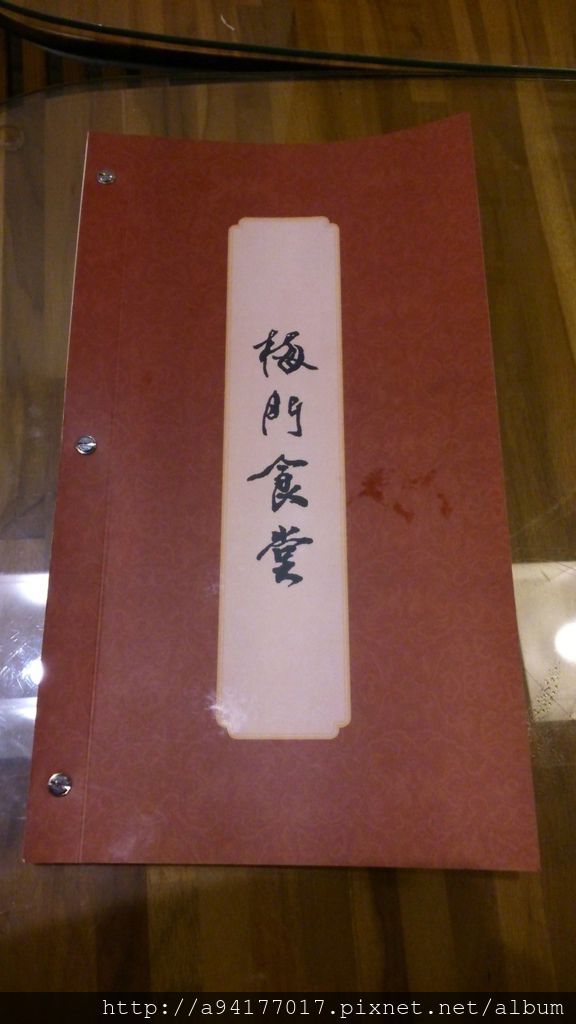 梅門食堂
http://a94177017.pixnet.net/album